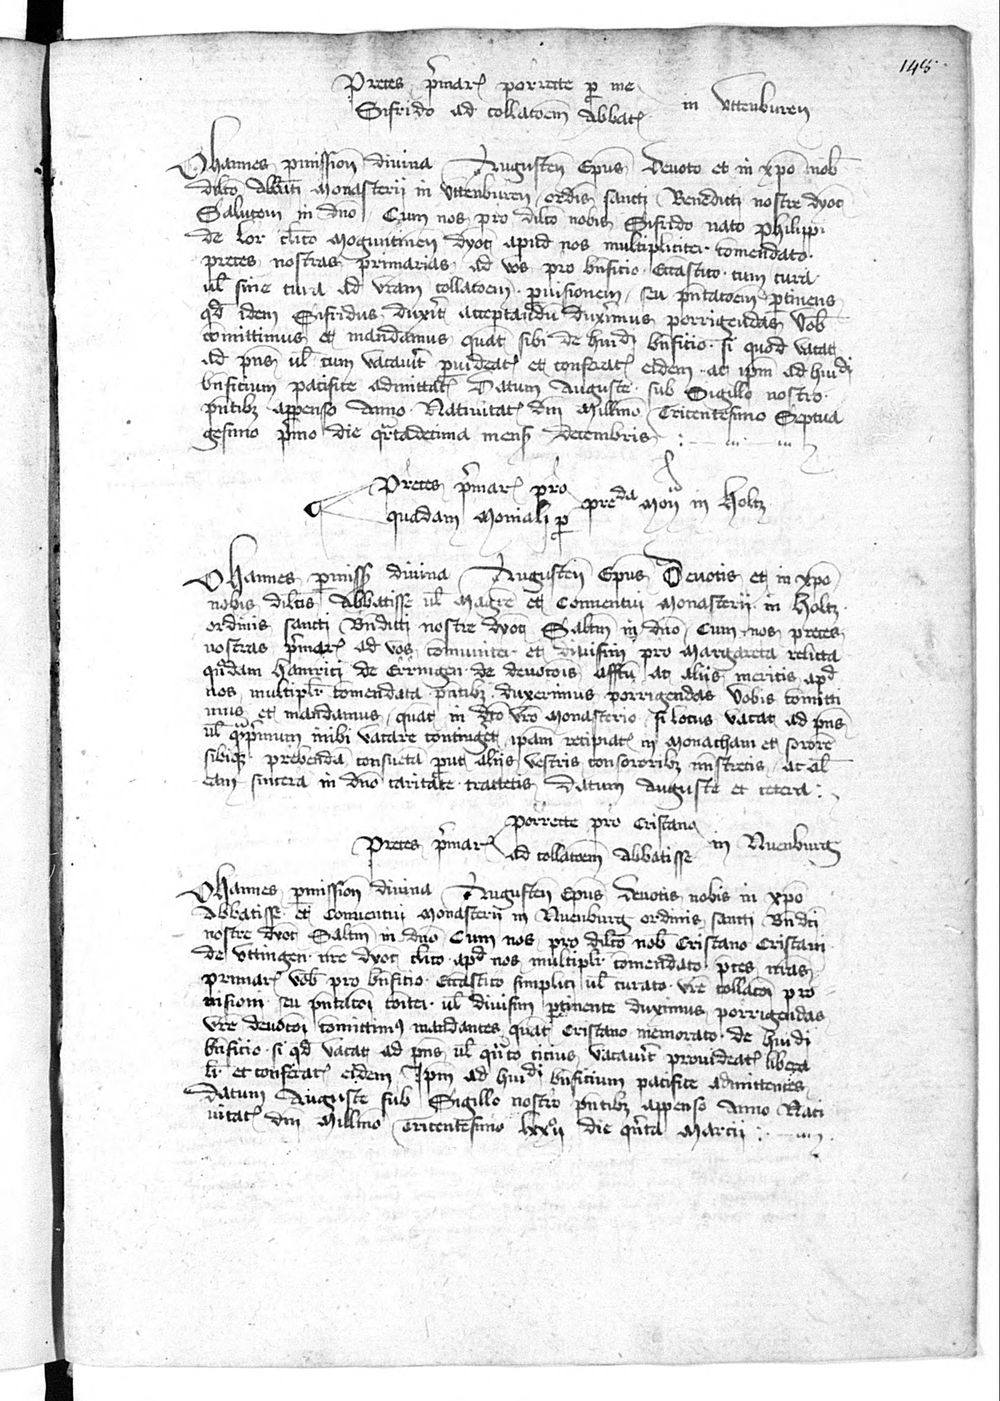 145
Preces p̄marꝭ porrecte p̱ me
Sifrido ad collatōem Abbatꝭ in Vttenburen
Johannes ꝑmissioñ diuina Augusteñ Ep̄us Deuoto et in xp̄o nob̄
dil̄co Abbati Monasterii in Vttenburen ordīs sancti Benedicti nostre dyoc̄
Salutem in dn̄o Cum nos pro dil̄co nobis Sifrido nato Philippi
de Lor cl̄ico Moguntineñ dyoc̄ apud nos multipliciter comendato
preces nostras primarias ad vos pro bn̄ficio Ecc̄astico cum cura
ul̄ sine cura ad vr̄am collatōem ꝓuisionem seu pn̄tatōem ꝑtinens
qd̄ idem Sifridus duxer̄it acceptandū duxim̄us porrigendas Vob̄
comittimus et mandamus quat̄ sibi de hui9di bn̄ficio si quod vacat
ad pn̄s ul̄ cum vacauer̄it ꝓuideatꝭ et conferatꝭ eidem ac ip̄m ad hui9di
bn̄ficium pacifice admittatꝭ Datum Auguste sub Sigillo nostro
pn̄tibꝫ appenso Anno Natiuitatꝭ dn̄i Mill̄mo Tricentesimo Septua
gesimo p̄mo die qr̄tadecima mens̄ Decembris
Preces p̄marꝭ pro
quadam Moniali p̱ preda Moñ in Holtz
Johannes ꝑmiss̄ diuina Augusteñ Ep̄us Deuotis et in xp̄o
nobis dil̄cis Abbatisse ul̄ Magr̄e et Conuentui Monasterii in Holtz
ordinis sancti Bn̄dicti nostre dyoc̄ Salt̄m in dn̄o Cum nos preces
nostras p̄marꝭ ad vos comuniter et diuisim pro Margareta relicta
qn̄dam Hainrici de Erringen de deuocōis affc̄u ac aliis meritis apd̄
nos multiplr̄ comendata pn̄tibꝫ duxerimus porrigendas Vobis comitti
mus et mandamus quat̄ in dc̄o vr̄o Monasterio si locus vacat ad pn̄s
ul̄ qp̄rimum inibi vacare continget ipam recipiatꝭ in Monacham et sororē
sibiqꝫ prebendā consuetā put aliis vestris consororibꝫ mīstretis ac al̄
eam sincera in dn̄o caritate tractetis Datum Auguste et cetera
Preces p̄marꝭ porrecte pro Cristano
ad collatōem Abbatisse in Nuenburg
Johannes ꝑmissioñ diuina Augusteñ Ep̄us Deuotis nobis in xp̄o
Abbatisse et Conuentui Monasterii in Nuenburg ordinis sancti Bn̄dc̄i
nostre dyoc̄ Salt̄m in dn̄o Cum nos pro dil̄co nob̄ Cristano Cristani
de Vttingen nr̄e dyoc̄ cl̄ico apd̄ nos multiplr̄ comendato p̄ces nr̄as
primarꝭ vob̄ pro bn̄ficio Ecc̄astico simplici ul̄ curato vr̄e collacōi pro
uisioni seu pn̄tatōi cōiter ul̄ diuisim ꝑtinente duximus porrigendas
vr̄e deuocōi comittimꝰ mandantes quat̄ Cristano memorato de hui9di
bn̄ficio si qd̄ vacat ad pn̄s ul̄ qn̄to cicius vacauer̄it prouideatꝭ libera
lr̄ et conferatꝭ eidem Ip̄m ad hui9di bn̄ficium pacifice admittentes
Datum Auguste sub Sigillo nostro pn̄tibꝫ appenso Anno Nati
uitatꝭ dn̄i Mill̄mo Tricentesimo lxxij die qr̄ta Marcii